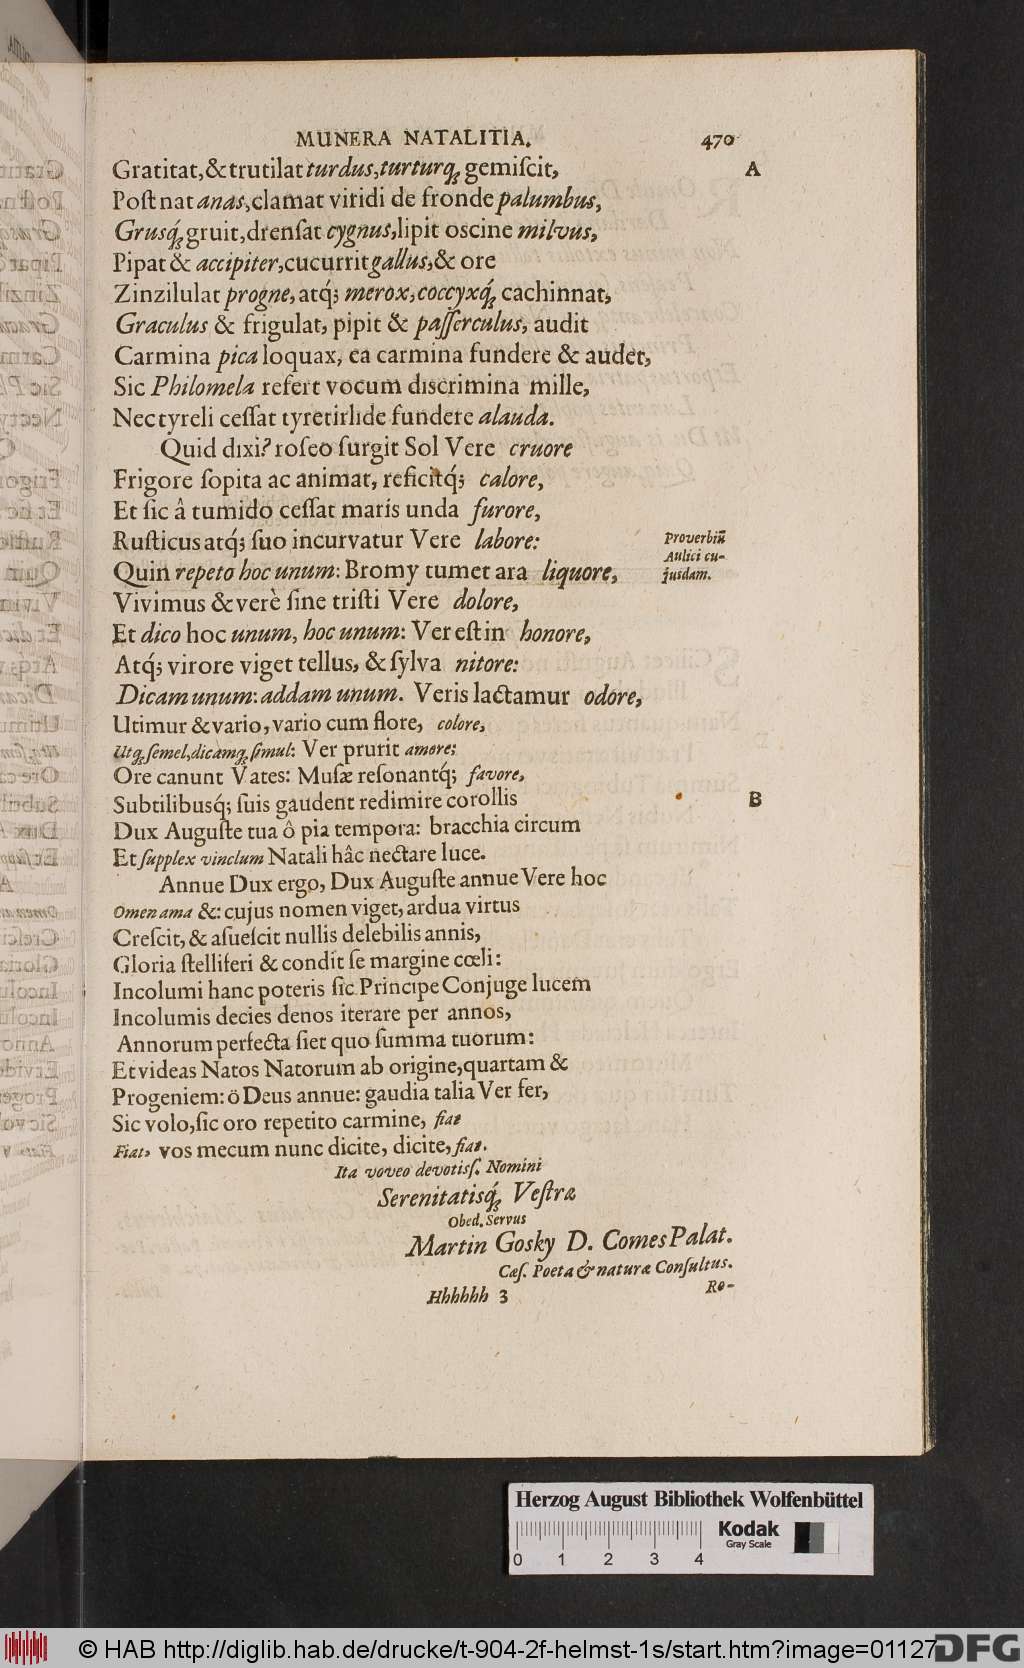 MUNERA NATALITIA. 470
Gratitat,&trutilat turdus,turturq́; gemiſcit, A
Poſt nat anas,clamat viridi de fronde palumbus,
Grusq́; gruit,drenſat cygnus,lipit oscine milvus,
Pipat & accipiter,cucurrit gallus,& ore
Zinzilulat progne, atq́; merox,coccyxq́; cachinnat,
Graculus & frigulat, pipit & paſſerculus, audit
Carmina pica loquax, ea carmina fundere & audet,
Sic Philomela refert vocum discrimina mille,
Nec tyreli ceſſat tyretirlide fundere alauda.
Quid dixi? roſeo ſurgit Sol Vere cruore
Frigore ſopita ac animat, reficitq́; calore,
Et ſic â tumido ceſſat maris unda furore,
Ruſticus atq́; ſuo incurvatur Vere labore: Proverbiũ
Aulici cu-
Quin repeto hoc unum: Bromy tumet ara liquore, juſdam.
Vivimus & verè ſine triſti Vere dolore,
Et dico hoc unum, hoc unum: Ver eſt in honore,
Atq́; virore viget tellus, & ſylva nitore:
Dicam unum: addam unum. Veris lactamur odore,
Utimur & vario, vario cum flore, colore,
Utq́; ſemel,dicamq́; ſimul: Ver prurit amore;
Ore canunt Vates: Muſæ reſonantq́; favore,
Subtilibusq́; ſuis gaudent redimire corollis B
Dux Auguſte tua ô pia tempora: bracchia circum
Et ſupplex vinclum Natali hâc nectare luce.
Annue Dux ergo, Dux Auguſte annue Vere hoc
Omen ama &: cujus nomen viget, ardua virtus
Creſcit, & aſueſcit nullis delebilis annis,
Gloria ſtelliferi & condit ſe margine cœli:
Incolumi hanc poteris ſic Principe Conjuge lucem
Incolumis decies denos iterare per annos,
Annorum perfecta ſiet quo ſumma tuorum:
Et videas Natos Natorum ab origine,quartam &
Progeniem: ö Deus annue: gaudia talia Ver fer,
Sic volo,ſic oro repetito carmine, fiat
Fiat, vos mecum nunc dicite, dicite, fiat.
Ita voveo devotiſſ. Nomini
Serenitatisq́; Veſtræ
Obed. Servus
Martin Gosky D. Comes Palat.
Cæſ. Poeta & naturæ Conſultus.
Hhhhhh 3 Re-
Herzog August Bibliothek Wolfenbüttel
Kodak
Gray Scale
0 1 2 3 4
© HAB http://diglib.hab.de/drucke/t-904-2f-helmst-1s/start.htm?image=01127
DFG